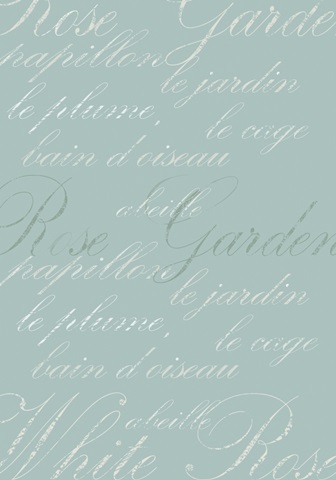 Rose Garde
papillon
le jardin
le plume,
le cage
bain d'oiseau
abeille
Rose Garden
papillon
le jardin
le plume,
le cage
bain d'oiseau
abeille
White Rose